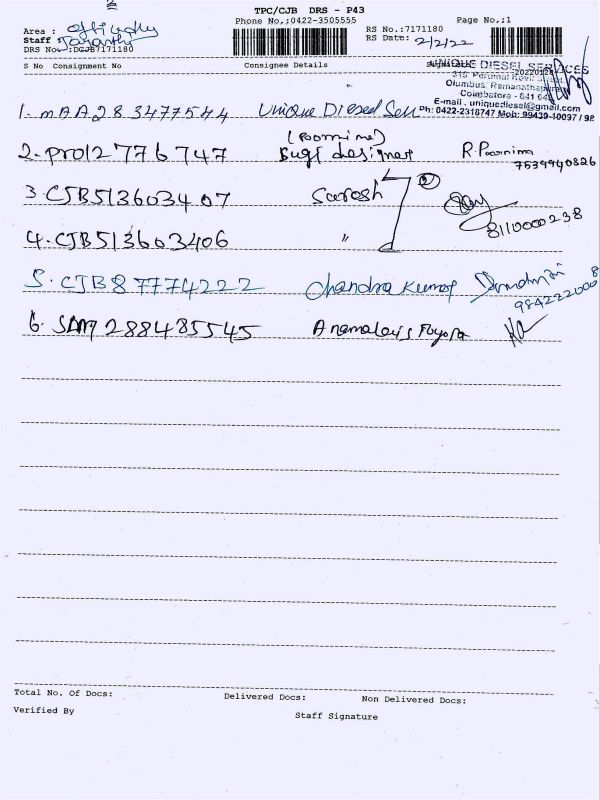 TPC/CJB DRS - P43
Phone No,:0422-3505555
Page No,:1
Area :
Staff :
DRS No.:DGCJB7171180
RS No.:7171180
RS Date: 2/2/22
S No Consignment No Consignee Details Signature
UNIQUE DIESEL SERVICES
315 Perumal Kovil Street
Olumbus, Ramanathapuram
Coimbatore - 641 045
E-mail . uniquediesel@gmail.com
Ph: 0422-2318747 Mob: 99439-40097 / 98
1. MAA283477544 Unique Diesel Serv
(Poornima)
2. PRO12776747 Sugi designer R. Poornima
7539940826
3. CJB513603407 Saresh 2
8110000238
4. CJB513603406 "
5. CJB87774222 Chandra Kumar
9842220008
6. SDM288435545 Anamalais Toyota
Total No. Of Docs: Delivered Docs: Non Delivered Docs:
Verified By Staff Signature